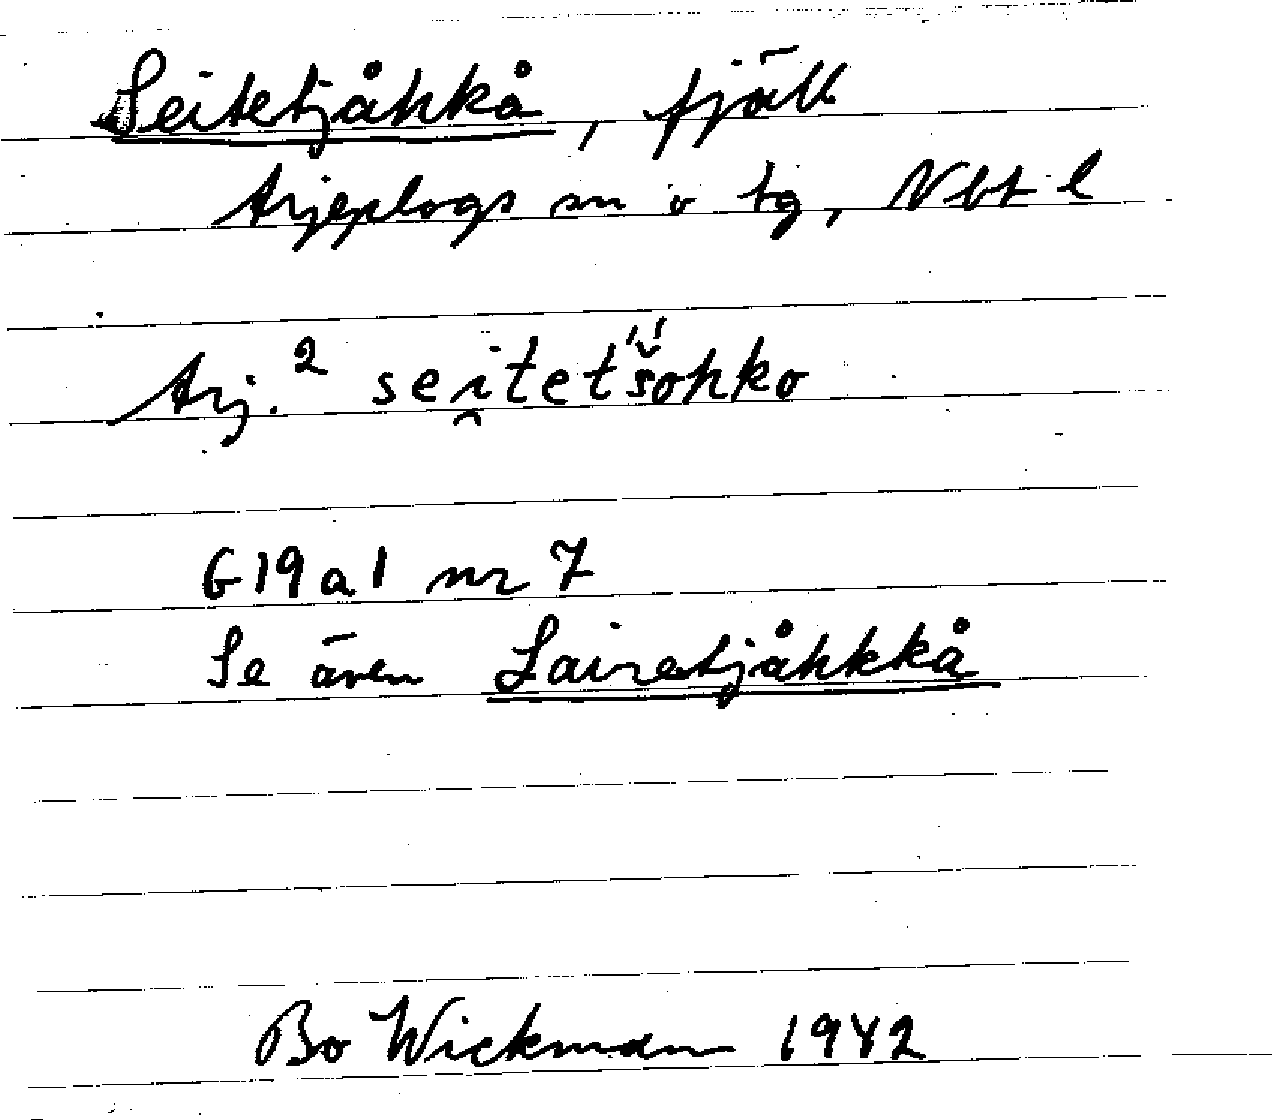 Seitetjåhkå, fjäll
Arjeplogs sn o tg, Nbt l
Arj.² sei̯tetš́ohko
G19a1 nr 7
Se även Sairetjåhkkå
Bo Wickman 1942